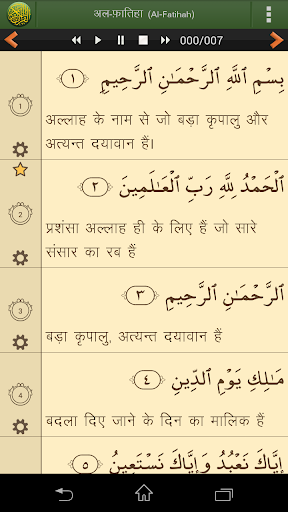 अल-फ़ातिहा (Al-Fatihah)
000/007
بِسْمِ ٱللَّهِ ٱلرَّحْمَـٰنِ ٱلرَّحِيمِ ﴿١﴾
1
अल्लाह के नाम से जो बड़ा कृपालु और
अत्यन्त दयावान हैं।
ٱلْحَمْدُ لِلَّهِ رَبِّ ٱلْعَـٰلَمِينَ ﴿٢﴾
2
प्रशंसा अल्लाह ही के लिए हैं जो सारे
संसार का रब हैं
ٱلرَّحْمَـٰنِ ٱلرَّحِيمِ ﴿٣﴾
3
बड़ा कृपालु, अत्यन्त दयावान हैं
مَـٰلِكِ يَوْمِ ٱلدِّينِ ﴿٤﴾
4
बदला दिए जाने के दिन का मालिक हैं
إِيَّاكَ نَعْبُدُ وَإِيَّاكَ نَسْتَعِينُ ﴿٥﴾